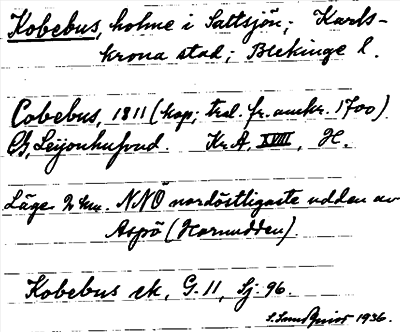 Kobebus, holme i Saltsjön; Karls-
krona stad; Blekinge l.
Cobebus, 1811 (kop; trol. fr. omkr. 1700).
Leijonhufvud. Kr.A, XVIII, H.
Läge 2 km. NNÖ nordöstligaste udden av
Aspö (Hornudden).
Kobebus sk, G. 11, Sj. 96.
S. Sundquist 1936.